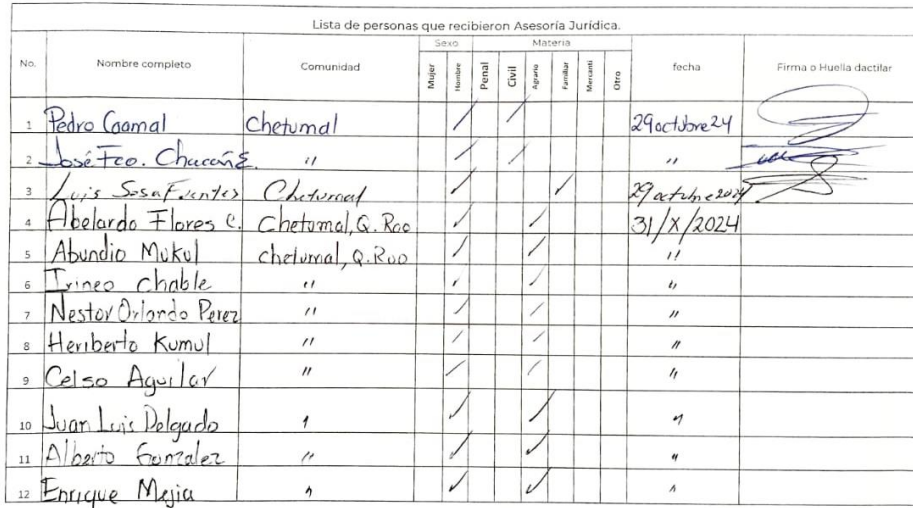 Lista de personas que recibieron Asesoría Jurídica.
Sexo Materia
No. Nombre completo Comunidad Mujer Hombre Penal Civil Agrario Familiar Mercantil Otro fecha Firma o Huella dactilar
1 Pedro Coamal Chetumal / / 29 octubre 24
2 José Fco. " / / "
3 Luis Sosa Fuentes Chetumal ✓ ✓ 29 octubre 2024
4 Abelardo Flores C. Chetumal, Q. Roo ✓ ✓ 31/X/2024
5 Abundio Mukul chetumal, Q. Roo ✓ ✓ "
6 Irineo Chable " ✓ ✓ "
7 Nestor Orlando Perez " ✓ ✓ "
8 Heriberto Kumul " ✓ ✓ "
9 Celso Aguilar " ✓ ✓ "
10 Juan Luis Delgado " ✓ ✓ "
11 Alberto Gonzalez " ✓ ✓ "
12 Enrique Mejia " ✓ ✓ "